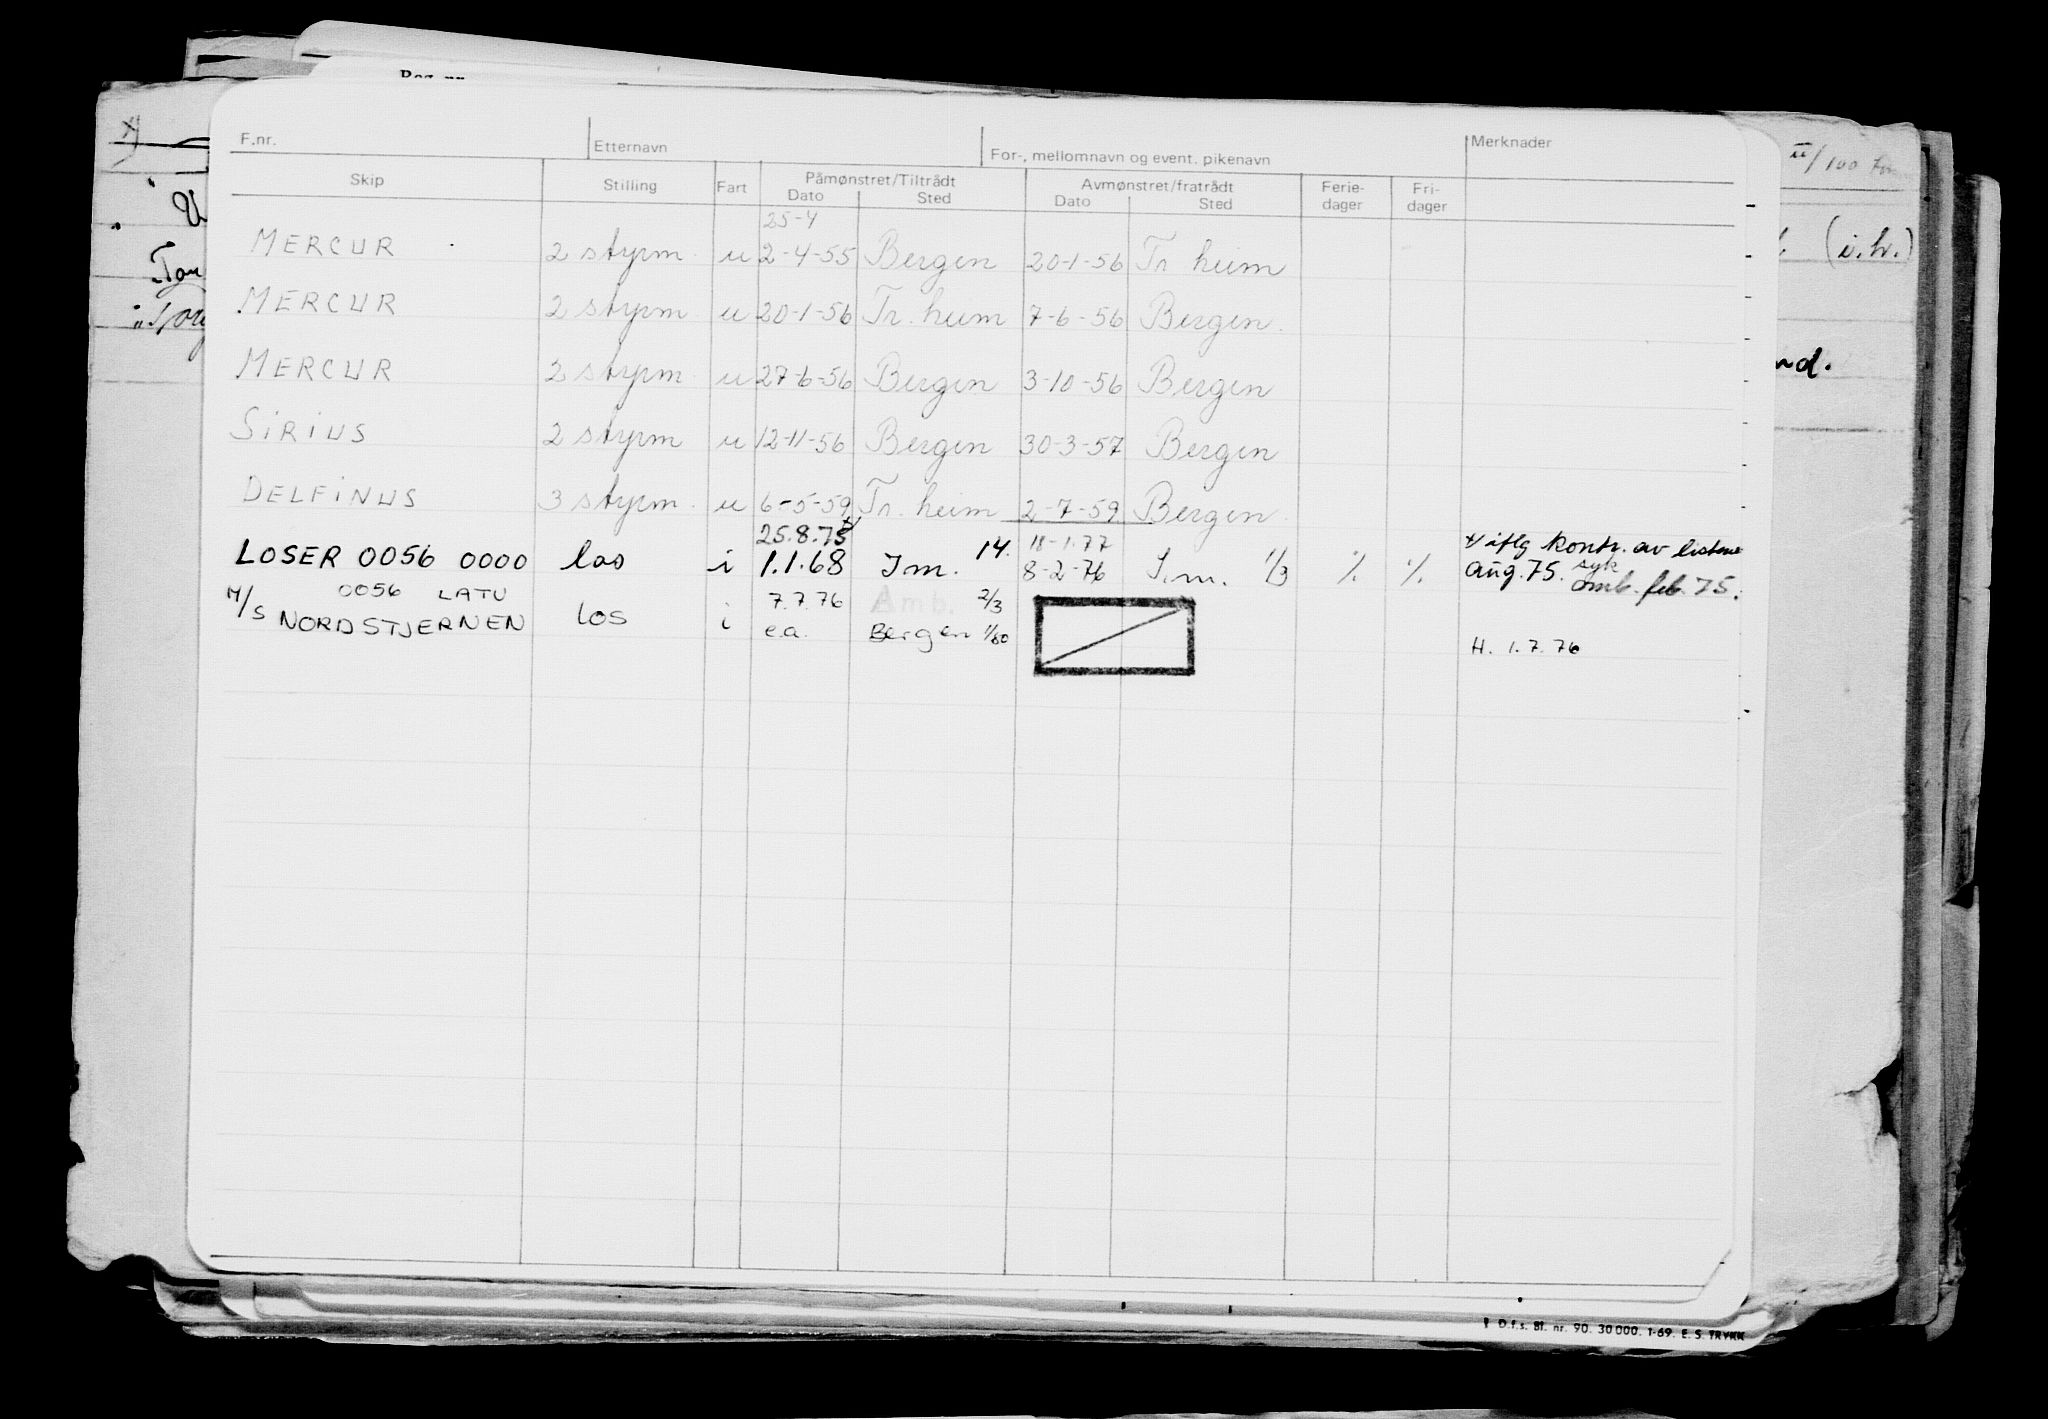 F.nr. Etternavn For-, mellomnavn og event. pikenavn Merknader
Skip Stilling Fart Påmønstret/Tiltrådt Avmønstret/fratrådt Ferie- Fri-
Dato Sted Dato Sted dager dager
25-4
MERCUR 2 styrm. u 2-4-55 Bergen 20-1-56 Tr heim
MERCUR 2 styrm u 20-1-56 Tr. heim 7-6-56 Bergen.
MERCUR 2 styrm. u 27-6-56 Bergen 3-10-56 Bergen
SiRiUS 2 styrm u 12-11-56 Bergen 30-3-57 Bergen
DELFiNUS 3 styrm. u 6-5-59 Tr. heim 2-7-59 Bergen
25.8.75 18-1.77 iflg kontr. av listene
LOSER 0056 0000 los i 1.1.68 I m. 14. 8-2-76 I.m. 1/3 % % Aug. 75. syk omb. feb. 75.
0056 LATU 7.7.76 Amb. 2/3
M/S NORDSTJERNEN los i e.a. Bergen 1/60 H. 1.7.76
(i.h.)
nd.
D.f.s. Bl. nr. 90. 30 000. 1-69. E. S. TRYKK